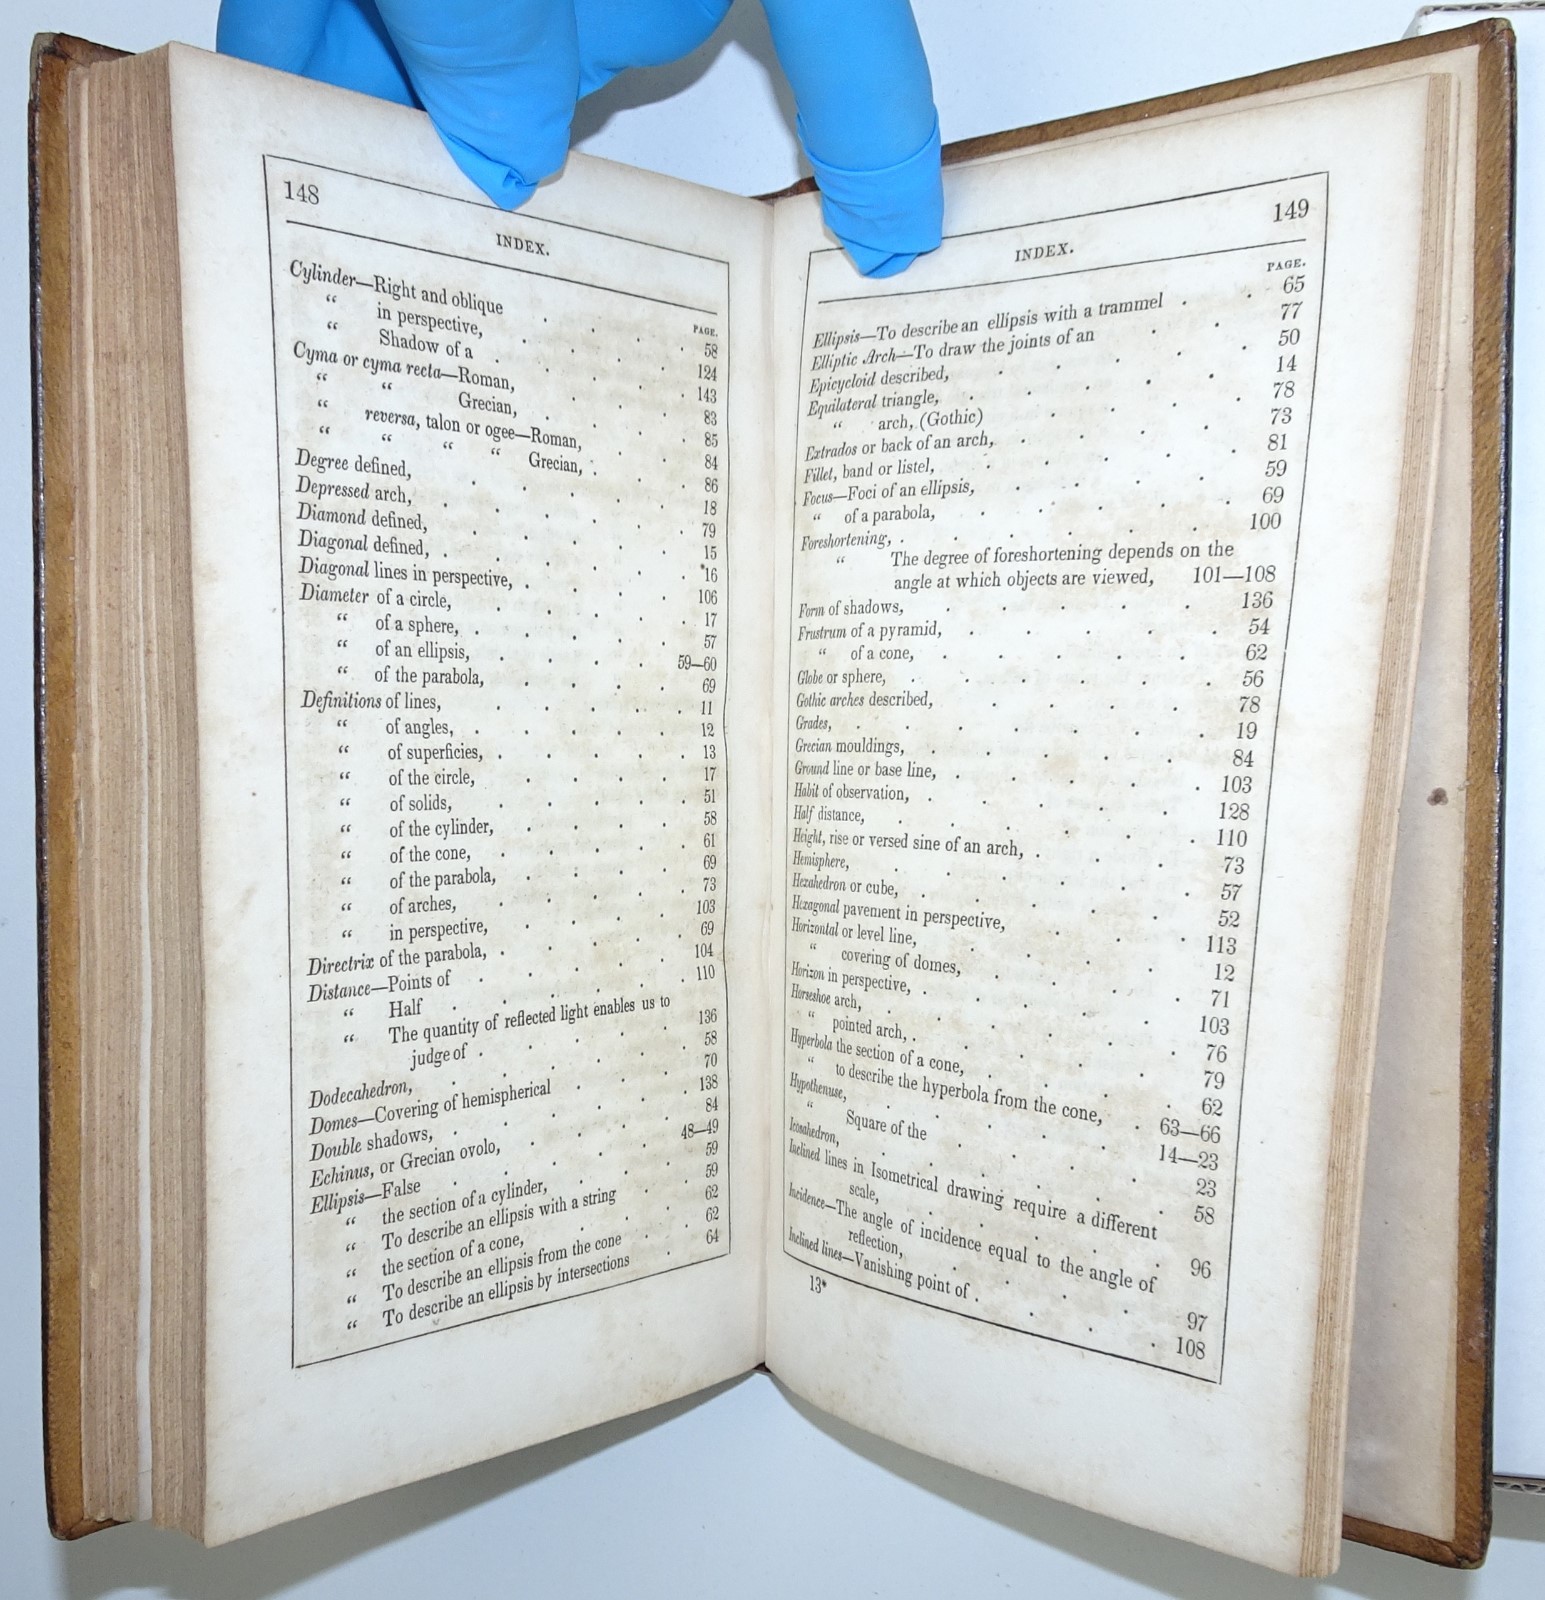 148
INDEX.
PAGE.
Cylinder—Right and oblique . . . 58
“ in perspective, . . . . 124
“ Shadow of a . . . . 143
Cyma or cyma recta—Roman, . . . 83
“ “ Grecian, . . . 85
“ reversa, talon or ogee—Roman, . . 84
“ “ “ “ Grecian, . . 86
Degree defined, . . . . . 18
Depressed arch, . . . . . 79
Diamond defined, . . . . . 15
Diagonal defined, . . . . . 16
Diagonal lines in perspective, . . . . 106
Diameter of a circle, . . . . . 17
“ of a sphere, . . . . . 57
“ of an ellipsis, . . . . 59—60
“ of the parabola, . . . . 69
Definitions of lines, . . . . . 11
“ of angles, . . . . . 12
“ of superficies, . . . . . 13
“ of the circle, . . . . . 17
“ of solids, . . . . . 51
“ of the cylinder, . . . . . 58
“ of the cone, . . . . . 61
“ of the parabola, . . . . . 69
“ of arches, . . . . . 73
“ in perspective, . . . . . 103
Directrix of the parabola, . . . . . 69
Distance—Points of . . . . . 104
“ Half . . . . . 110
“ The quantity of reflected light enables us to
judge of . . . . . 136
Dodecahedron, . . . . . 58
Domes—Covering of hemispherical . . . 70
Double shadows, . . . . . 138
Echinus, or Grecian ovolo, . . . . 84
Ellipsis—False . . . . . 48—49
“ the section of a cylinder, . . . . 59
“ To describe an ellipsis with a string . . 59
“ the section of a cone, . . . . 62
“ To describe an ellipsis from the cone . . 62
“ To describe an ellipsis by intersections . 64
149
INDEX.
PAGE.
Ellipsis—To describe an ellipsis with a trammel . . 65
Elliptic Arch—To draw the joints of an . . 77
Epicycloid described, . . . . . 50
Equilateral triangle, . . . . . 14
“ arch, (Gothic) . . . . 78
Extrados or back of an arch, . . . . 73
Fillet, band or listel, . . . . . 81
Focus—Foci of an ellipsis, . . . . 59
“ of a parabola, . . . . . 69
Foreshortening, . . . . . 100
“ The degree of foreshortening depends on the
angle at which objects are viewed, 101—108
Form of shadows, . . . . . 136
Frustrum of a pyramid, . . . . . 54
“ of a cone, . . . . . 62
Globe or sphere, . . . . . 56
Gothic arches described, . . . . 78
Grades, . . . . . 19
Grecian mouldings, . . . . . 84
Ground line or base line, . . . . . 103
Habit of observation, . . . . . 128
Half distance, . . . . . 110
Height, rise or versed sine of an arch, . . . 73
Hemisphere, . . . . . 57
Hexahedron or cube, . . . . . 52
Hexagonal pavement in perspective, . . . 113
Horizontal or level line, . . . . . 12
“ covering of domes, . . . . 71
Horizon in perspective, . . . . . 103
Horseshoe arch, . . . . . 76
“ pointed arch, . . . . . 79
Hyperbola the section of a cone, . . . . 62
“ to describe the hyperbola from the cone, . 63—66
Hypothenuse, . . . . . 14—23
“ Square of the . . . . . 23
Icosahedron, . . . . . 58
Inclined lines in Isometrical drawing require a different
scale, . . . . . 96
Incidence—The angle of incidence equal to the angle of
reflection, . . . . . 97
Inclined lines—Vanishing point of . . . . 108
13*